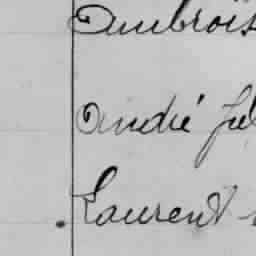 Ambrois
André
Laurent